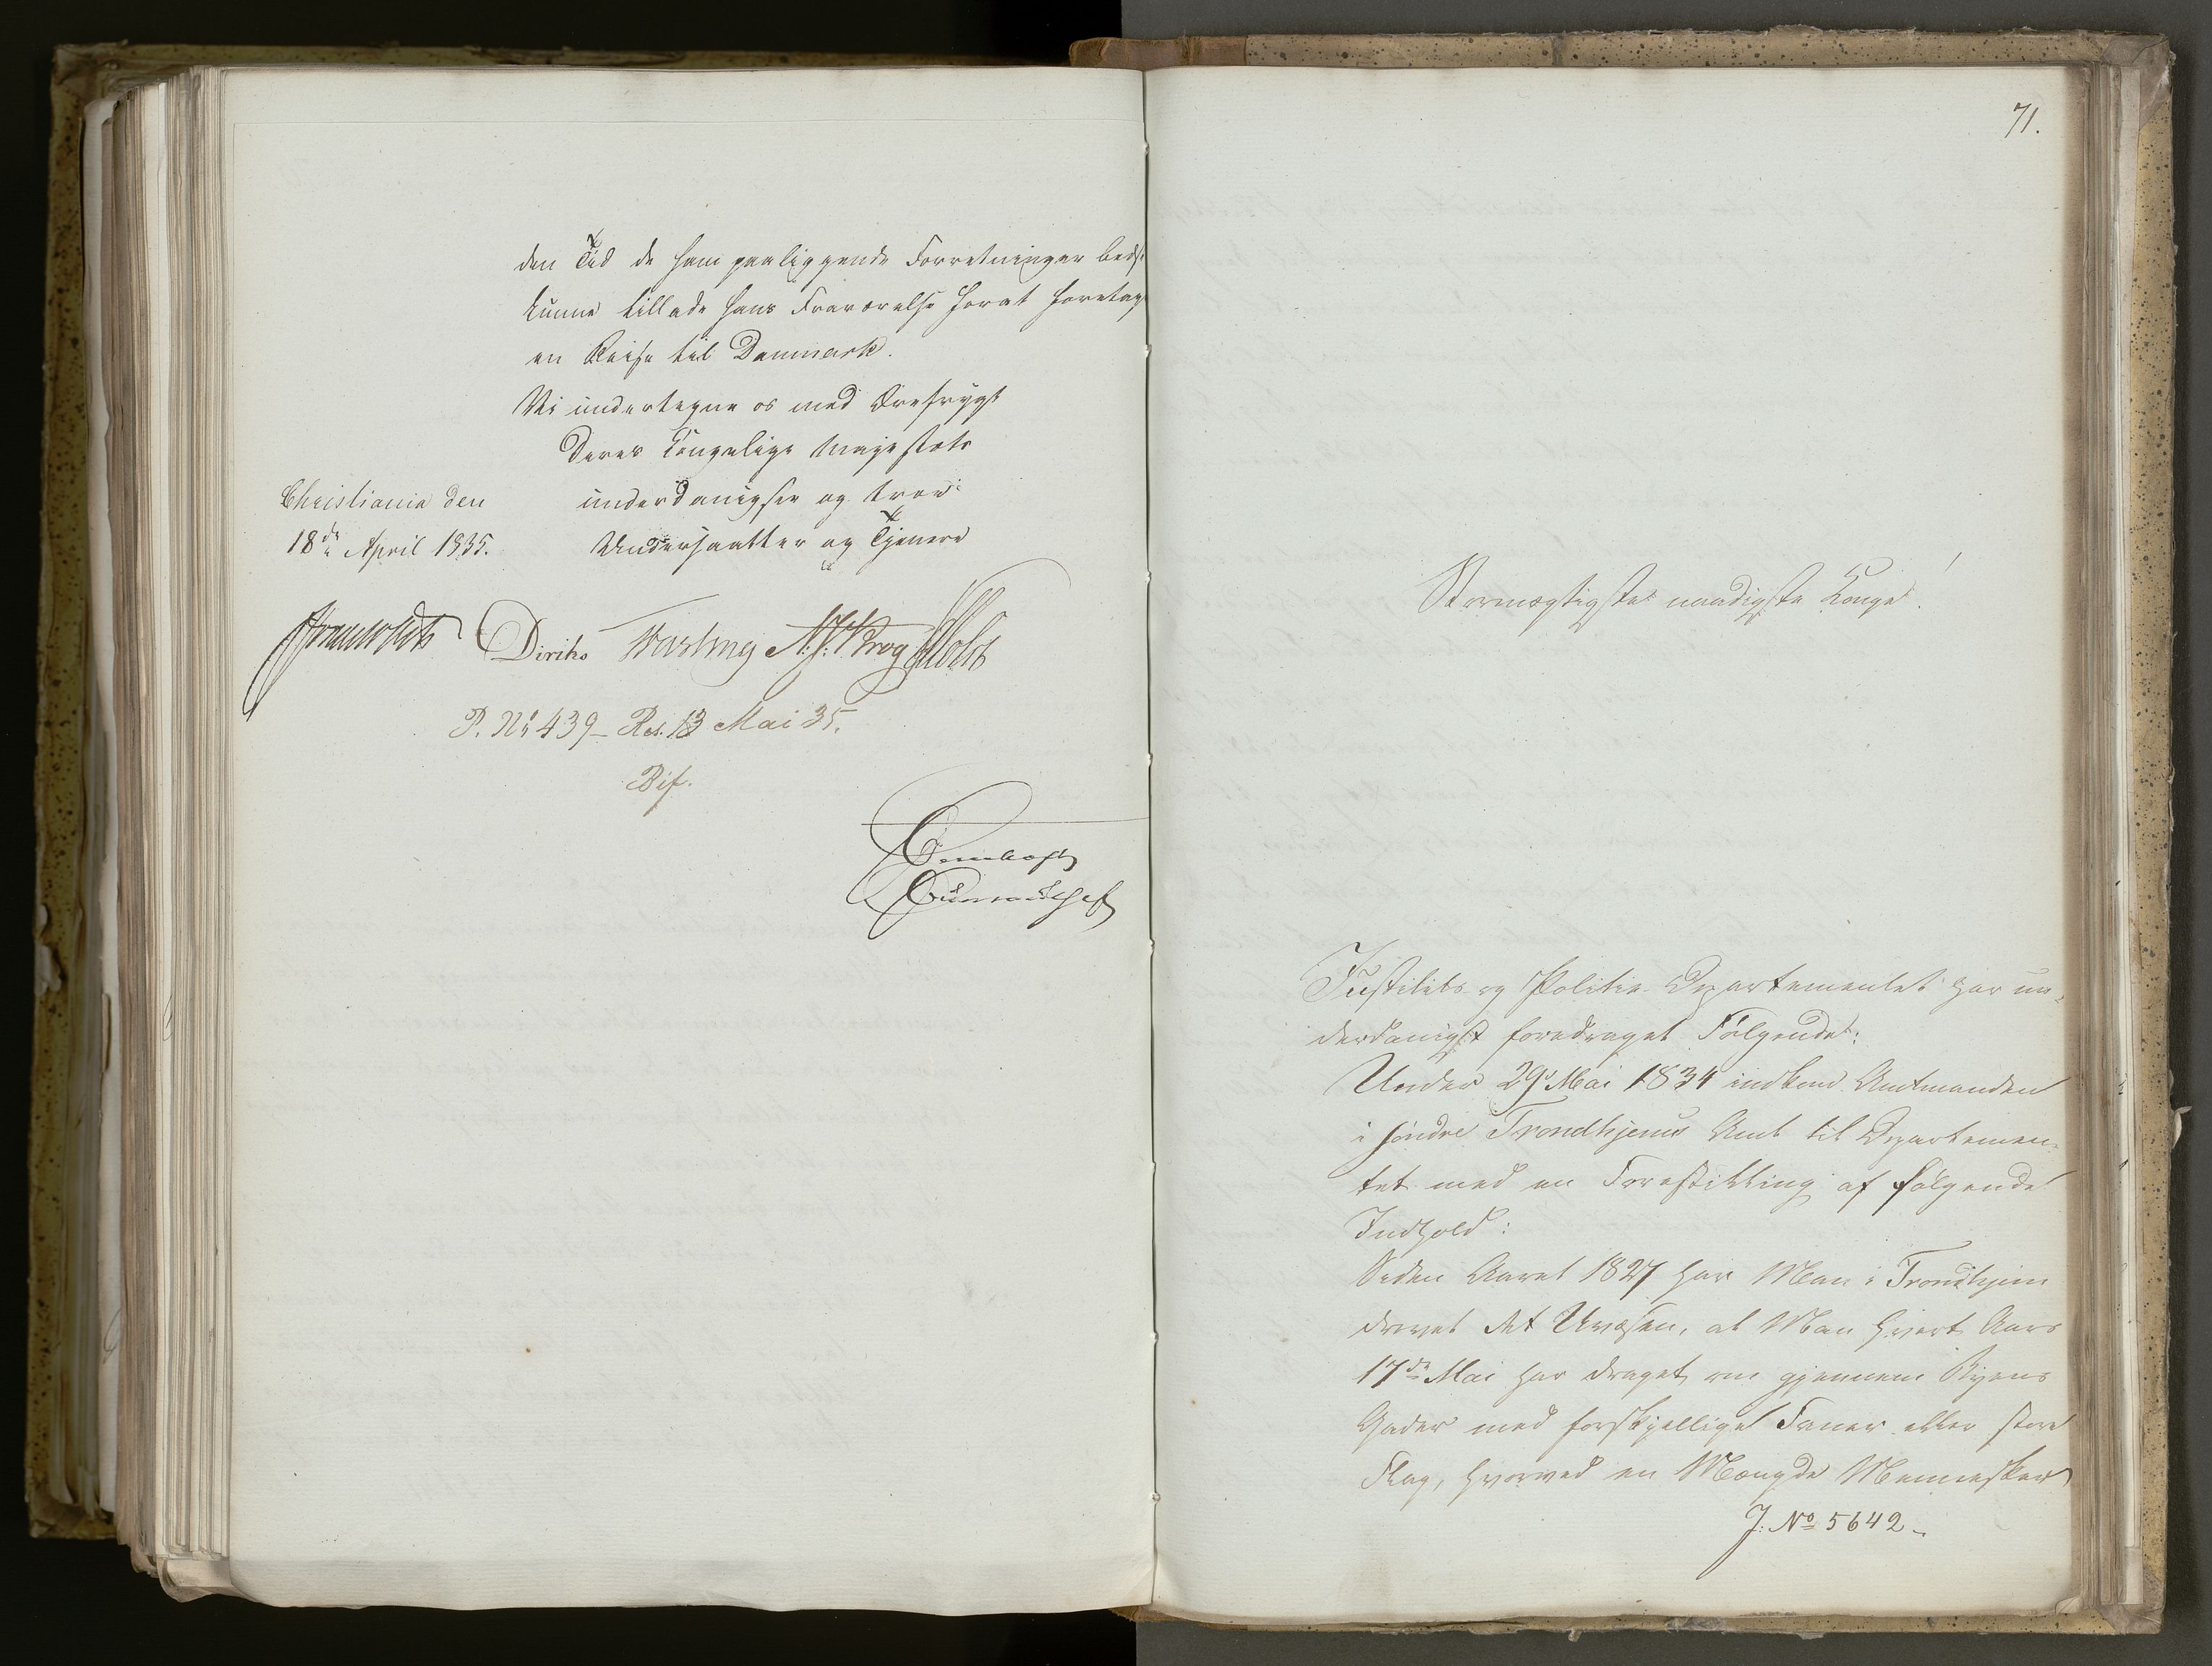 den Tid de ham paaliggende Forretninger bedst
kunne tillade hans Fraværelse forat foretage
en Reise til Danmark.
Vi undertegne os med Ærefrygt
Deres Kongelige Majestæts
Christiania den
18de April 1835.
underdanigste og troe
Undersaatter og Tjenere
Diriks Vasting N: J: Krog Holst
P. No 439 - Res. 13 Mai 35.
Bif.
71.
Stormægtigste naadigste Konge!
Justitits og Politie Departementet har un-
derdanigst foredraget Følgende:
Under 29de Mai 1834 indkom Amtmanden
i søndre Trondhjems Amt til Departemen-
tet med en Forestilling af følgende
Indhold:
Siden Aaret 1827 har Man i Trondhjem
drevet det Uvæsen, at Man hvert Aars
17de Mai har draget om gjennem Byens
Gader med forskjellige Faner eller store
Flag, hvorved en Mængde Mennesker
J: No 5642-